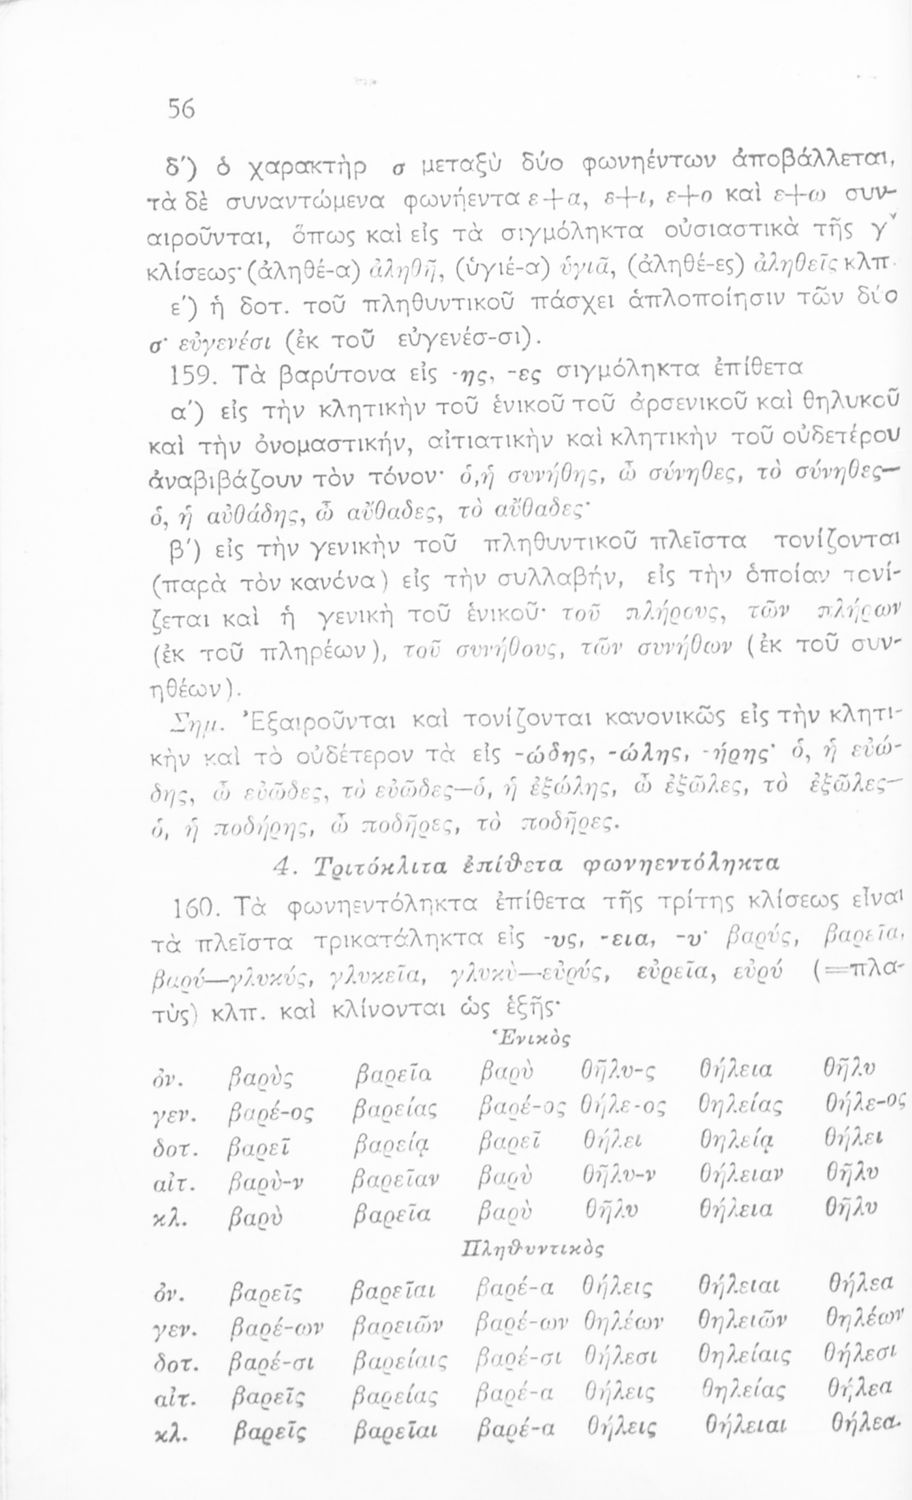 56
δ') ὁ χαρακτὴρ σ μεταξὺ δύο φωνηέντων ἀποβάλλεται,
τὰ δὲ συναντώμενα φωνήεντα ε+α, ε+ι, ε+ο καὶ ε+ω συν-
αιροῦνται, ὅπως καὶ εἰς τὰ σιγμόληκτα οὐσιαστικὰ τῆς γ'
κλίσεως· (ἀληθέ-α) ἀληθῆ, (ὑγιέ-α) ὑγιᾶ, (ἀληθέ-ες) ἀληθεῖς κλπ.
ε') ἡ δοτ. τοῦ πληθυντικοῦ πάσχει ἁπλοποίησιν τῶν δύο
σ· εὐγενέσι (ἐκ τοῦ εὐγενέσ-σι).
159. Τὰ βαρύτονα εἰς -ης, -ες σιγμόληκτα ἐπίθετα
α') εἰς τὴν κλητικὴν τοῦ ἑνικοῦ τοῦ ἀρσενικοῦ καὶ θηλυκοῦ
καὶ τὴν ὀνομαστικήν, αἰτιατικὴν καὶ κλητικὴν τοῦ οὐδετέρου
ἀναβιβάζουν τὸν τόνον· ὁ,ἡ συνήθης, ὦ σύνηθες, τὸ σύνηθες—
ὁ, ἡ αὐθάδης, ὦ αὔθαδες, τὸ αὔθαδες·
β') εἰς τὴν γενικὴν τοῦ πληθυντικοῦ πλεῖστα τονίζονται
(παρὰ τὸν κανόνα) εἰς τὴν συλλαβήν, εἰς τὴν ὁποίαν τονί-
ζεται καὶ ἡ γενικὴ τοῦ ἑνικοῦ· τοῦ πλήρους, τῶν πλήρων
(ἐκ τοῦ πληρέων), τοῦ συνήθους, τῶν συνήθων (ἐκ τοῦ συν-
ηθέων).
Σημ. Ἐξαιροῦνται καὶ τονίζονται κανονικῶς εἰς τὴν κλητι-
κὴν καὶ τὸ οὐδέτερον τὰ εἰς -ώδης, -ώλης, -ήρης· ὁ, ἡ εὐώ-
δης, ὦ εὐῶδες, τὸ εὐῶδες—ὁ, ἡ ἐξώλης, ὦ ἐξῶλες, τὸ ἐξῶλες—
ὁ, ἡ ποδήρης, ὦ ποδῆρες, τὸ ποδῆρες.
4. Τριτόκλιτα ἐπίθετα φωνηεντόληκτα
160. Τὰ φωνηεντόληκτα ἐπίθετα τῆς τρίτης κλίσεως εἶναι
τὰ πλεῖστα τρικατάληκτα εἰς -υς, -εια, -υ· βαρύς, βαρεῖα,
βαρύ—γλυκύς, γλυκεῖα, γλυκὺ—εὐρύς, εὐρεῖα, εὐρύ (=πλα-
τὺς) κλπ. καὶ κλίνονται ὡς ἑξῆς·
Ἑνικὸς
ὀν. βαρὺς βαρεῖα βαρὺ θῆλυ-ς θήλεια θῆλυ
γεν. βαρέ-ος βαρείας βαρέ-ος θήλε-ος θηλείας θήλε-ος
δοτ. βαρεῖ βαρείᾳ βαρεῖ θήλει θηλείᾳ θήλει
αἰτ. βαρὺ-ν βαρεῖαν βαρὺ θῆλυ-ν θήλειαν θῆλυ
κλ. βαρὺ βαρεῖα βαρὺ θῆλυ θήλεια θῆλυ
Πληθυντικὸς
ὀν. βαρεῖς βαρεῖαι βαρέ-α θήλεις θήλειαι θήλεα
γεν. βαρέ-ων βαρειῶν βαρέ-ων θηλέων θηλειῶν θηλέων
δοτ. βαρέ-σι βαρείαις βαρέ-σι θήλεσι θηλείαις θήλεσι
αἰτ. βαρεῖς βαρείας βαρέ-α θήλεις θηλείας θήλεα
κλ. βαρεῖς βαρεῖαι βαρέ-α θήλεις θήλειαι θήλεα.